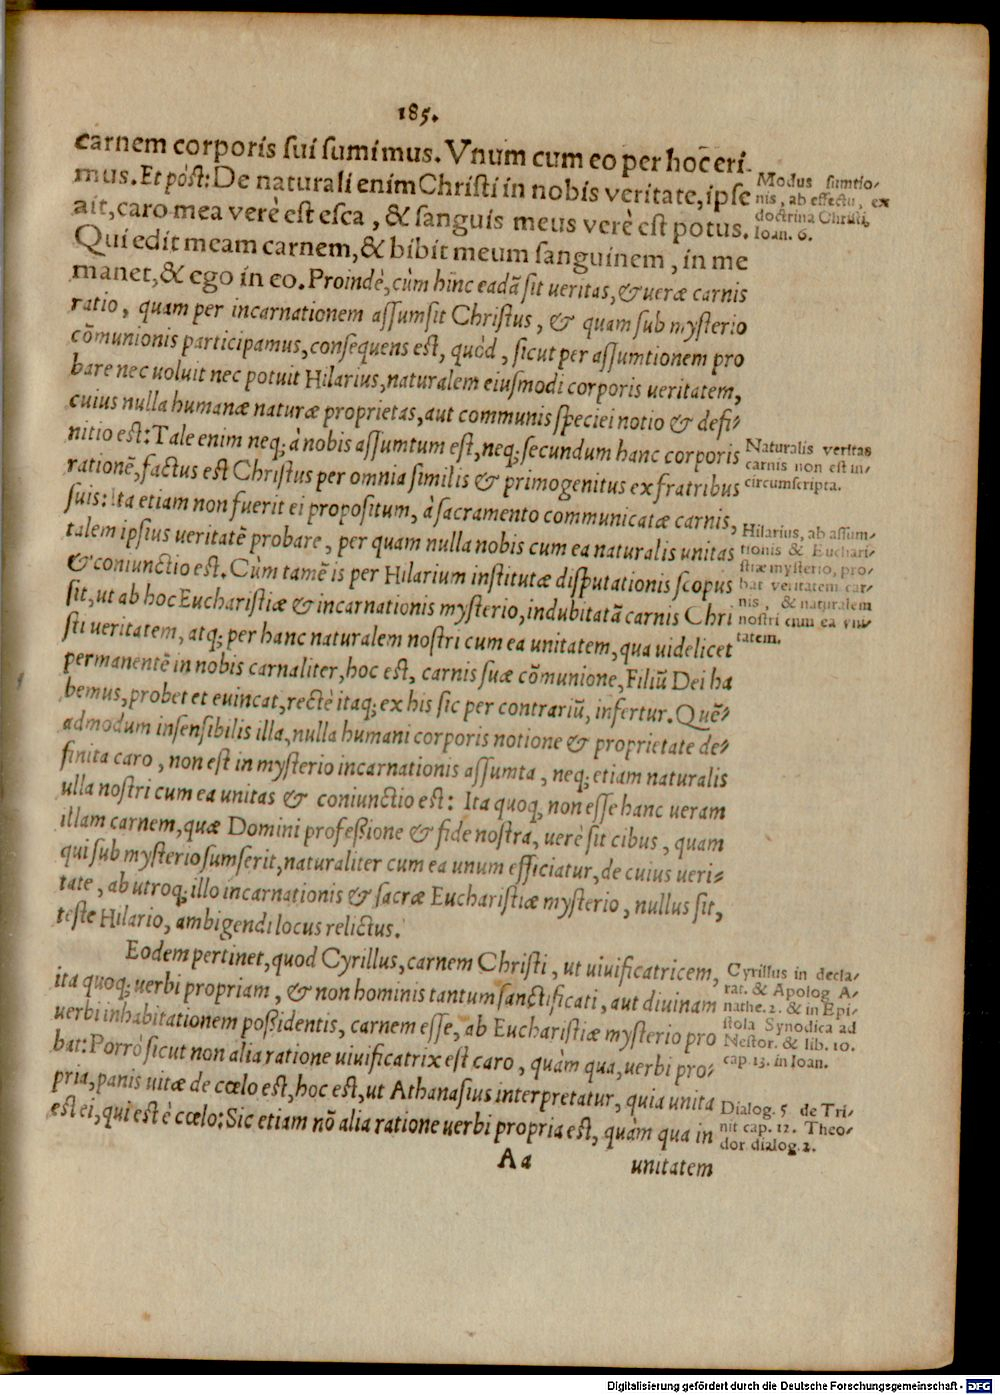 185.
carnem corporis sui sumimus. Vnum cum eo per hoc̄ eri-
mus. Et pòst: De naturali enim Christi in nobis veritate, ipse
ait, caro mea verè est esca, & sanguis meus verè est potus.
Qui edit meam carnem, & bibit meum sanguinem, in me
manet, & ego in eo. Proindè, cùm hinc eadã sit ueritas, & ueræ carnis
ratio, quam per incarnationem assumsit Christus, & quam sub mysterio
cõmunionis participamus, consequens est, quòd, sicut per assumtionem pro
bare nec uoluit nec potuit Hilarius, naturalem eiusmodi corporis ueritatem,
cuius nulla humanæ naturæ proprietas, aut communis speciei notio & defi-
nitio est: Tale enim neq; à nobis assumtum est, neq; secundum hanc corporis
rationẽ, factus est Christus per omnia similis & primogenitus ex fratribus
suis: Ita etiam non fuerit ei propositum, à sacramento communicatæ carnis,
talem ipsius ueritatẽ probare, per quam nulla nobis cum ea naturalis unitas
& coniunctio est. Cùm tamẽ is per Hilarium institutæ disputationis scopus
sit, ut ab hoc Eucharistiæ & incarnationis mysterio, indubitatã carnis Chri
sti ueritatem, atq; per hanc naturalem nostri cum ea unitatem, qua uidelicet
permanentẽ in nobis carnaliter, hoc est, carnis suæ cõmunione, Filiũ Dei ha
bemus, probet et euincat, rectè itaq; ex his sic per contrariũ, infertur. Quẽ-
admodum insensibilis illa, nulla humani corporis notione & proprietate de-
finita caro, non est in mysterio incarnationis assumta, neq; etiam naturalis
ulla nostri cum ea unitas & coniunctio est: Ita quoq; non esse hanc ueram
illam carnem, quæ Domini professione & fide nostra, uerè sit cibus, quam
qui sub mysterio sumserit, naturaliter cum ea unum efficiatur, de cuius ueri-
tate, ab utroq; illo incarnationis & sacræ Eucharistiæ mysterio, nullus sit,
teste Hilario, ambigendi locus relictus.
Eodem pertinet, quod Cyrillus, carnem Christi, ut uiuificatricem,
ita quoq; uerbi propriam, & non hominis tantum sanctificati, aut diuinam
uerbi inhabitationem possidentis, carnem esse, ab Eucharistiæ mysterio pro
bat: Porrò sicut non alia ratione uiuificatrix est caro, quàm qua, uerbi pro-
pria, panis uitæ de cœlo est, hoc est, ut Athanasius interpretatur, quia unita
est ei, qui est è cœlo: Sic etiam nõ alia ratione uerbi propria est, quàm qua in
Aa unitatem
Modus sumtio-
nis, ab effectu, ex
doctrina Christi,
Ioan. 6.
Naturalis veritas
carnis non est in-
circumscripta.
Hilarius, ab assum-
tionis & Euchari-
stiæ mysterio, pro-
bat veritatem car-
nis, & naturalem
nostri cum ea vni-
tatem.
Cyrillus in decla-
rat. & Apolog A-
nathe. 2. & in Epi-
stola Synodica ad
Nestor. & lib. 10.
cap. 13. in Ioan.
Dialog. 5 de Tri-
nit cap. 12. Theo-
dor dialog. 2.
Digitalisierung gefördert durch die Deutsche Forschungsgemeinschaft - DFG